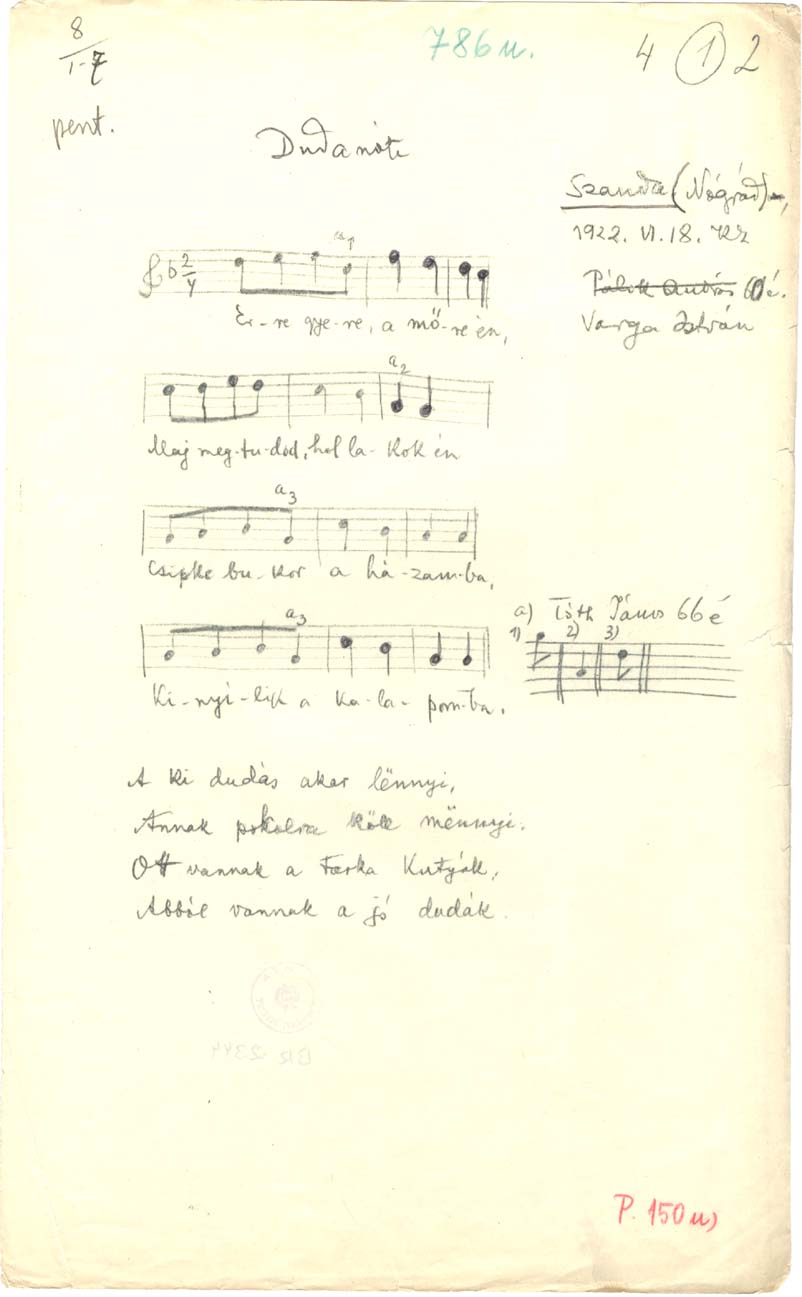 8
I-7
786u.
4 1 2
pent.
Dudanóta
Szanda (Nógrád),
1922. VI. 18.
Pálik András 60é.
Varga István
a1
2
4
Ër-re gye-re, a mő-re én,
a2
Maj meg-tu-dod, hol la-kok én
a3
Csipke bu-kor a há-zam-ba,
a3
Ki-nyi-lik a ka-la-pom-ba.
a) Tóth János 66é
1) 2) 3)
A ki dudás akar lënnyi,
Annak pokolra köll mënnyi.
Ott vannak a farka kutyák,
Abból vannak a jó dudák.
P. 150u)